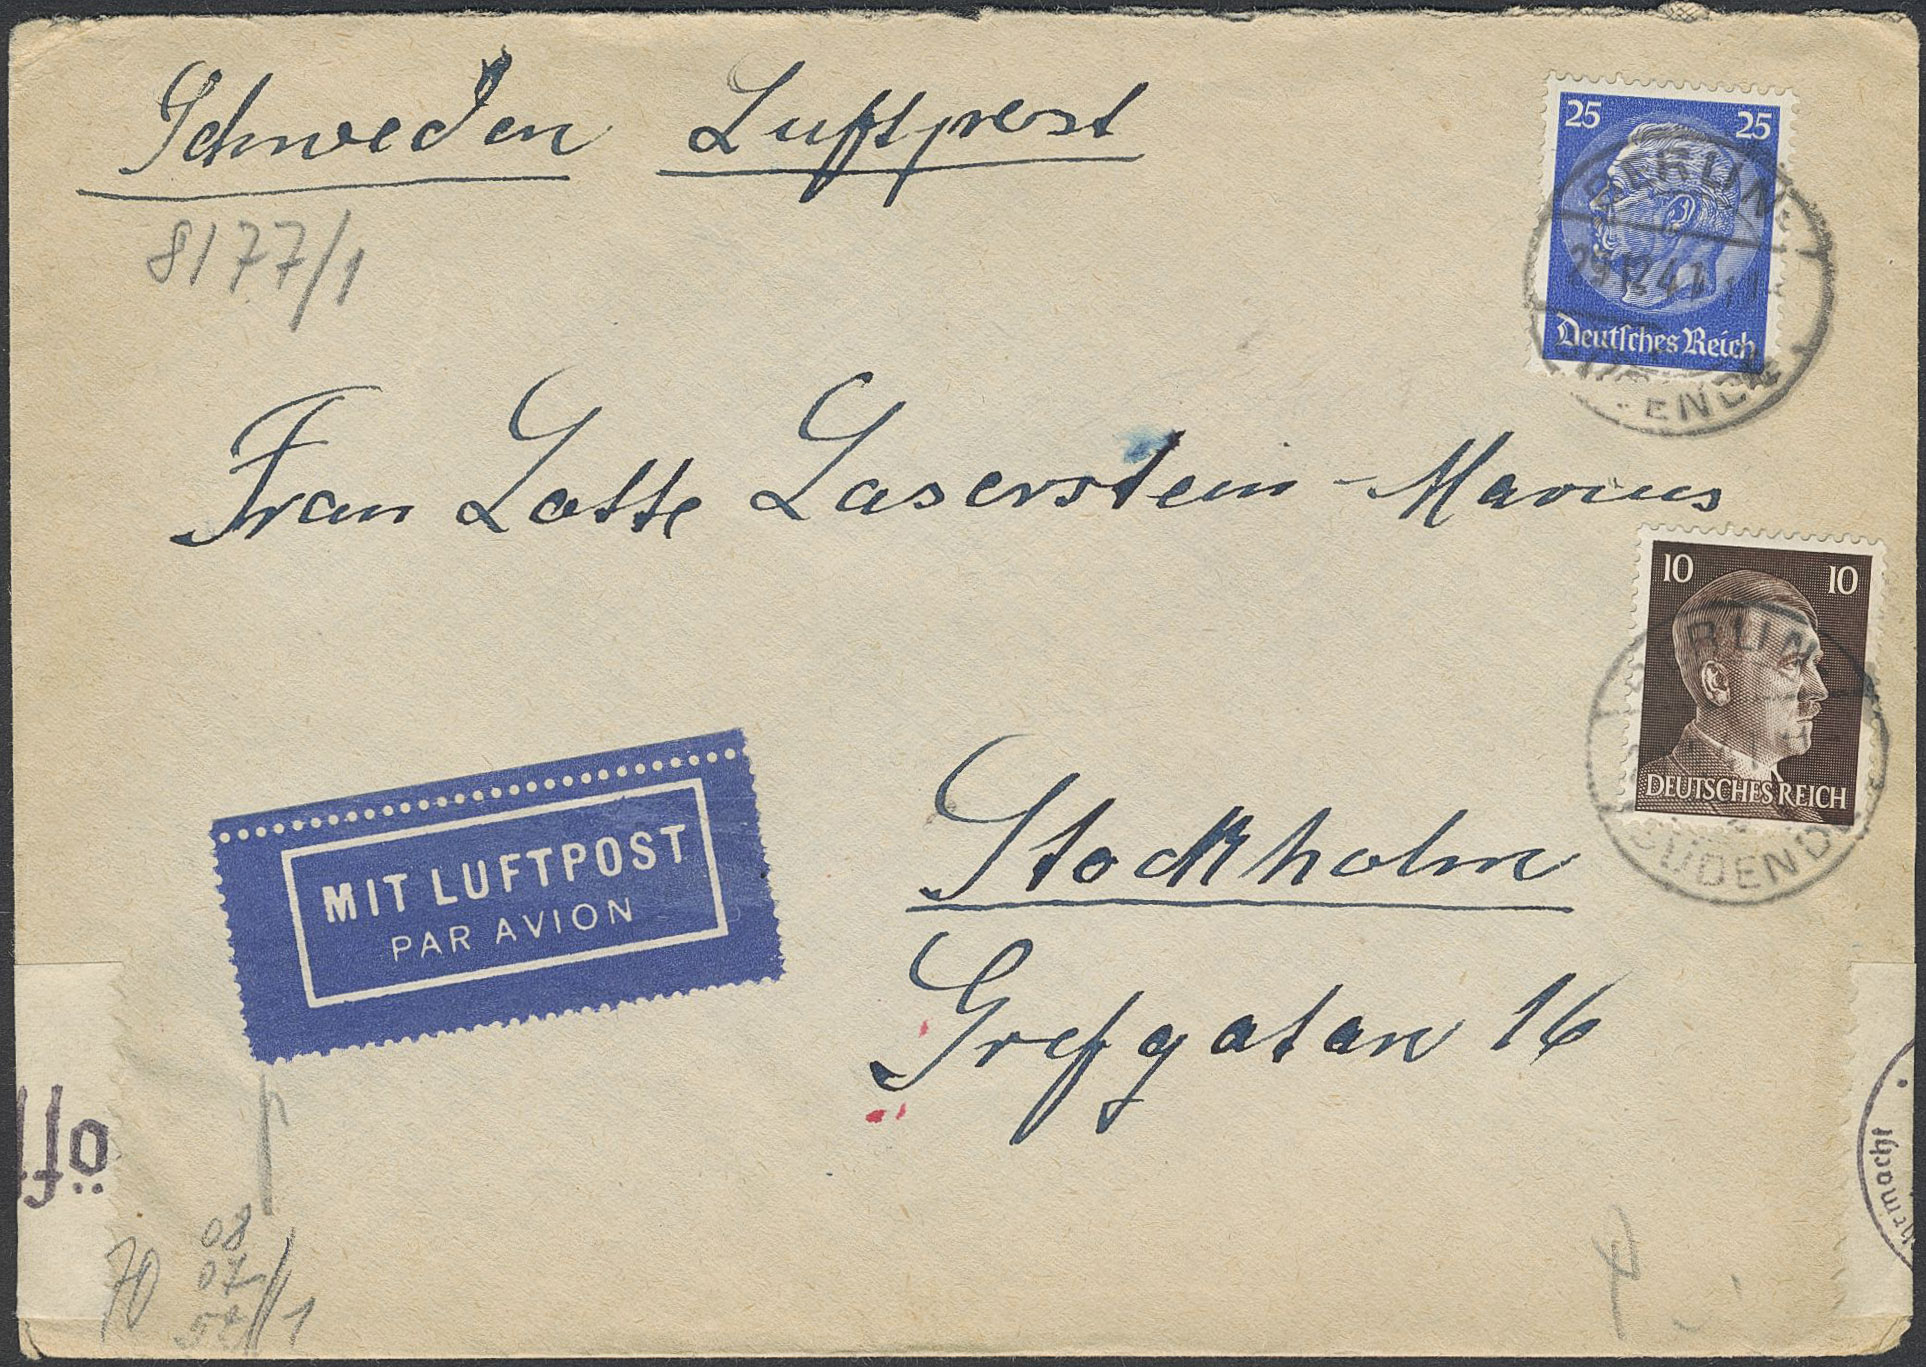 Schweden Luftpost
8177/1
25 25
BERLIN
29.12.41
Deutsches Reich
Frau Lotte Laserstein-Marcus
10 10
BERLIN
DEUTSCHES REICH
SÜDENDE
MIT LUFTPOST
PAR AVION
Stockholm
Grefgatan 16
öff
70
08
07